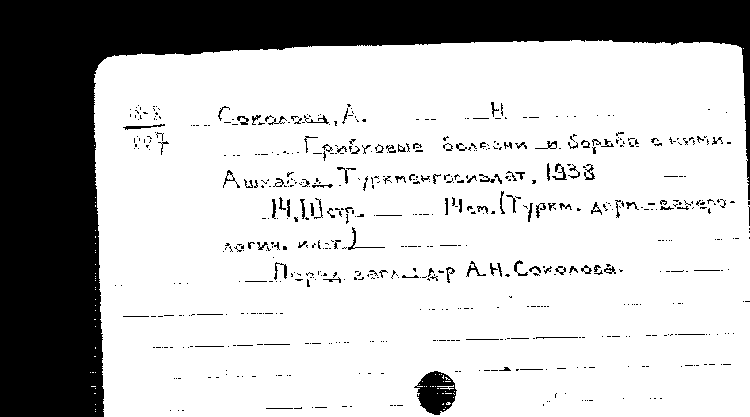 18-8 Соколова, А. Н
227 Грибковые болезни и борьба с ними.
Ашхабад. Туркменгосиздат, 1938
14,[1]стр. 14см.(Туркм. дерм.-венеро-
логич. ин-т)
Перед загл.: д-р А.Н.Соколова.